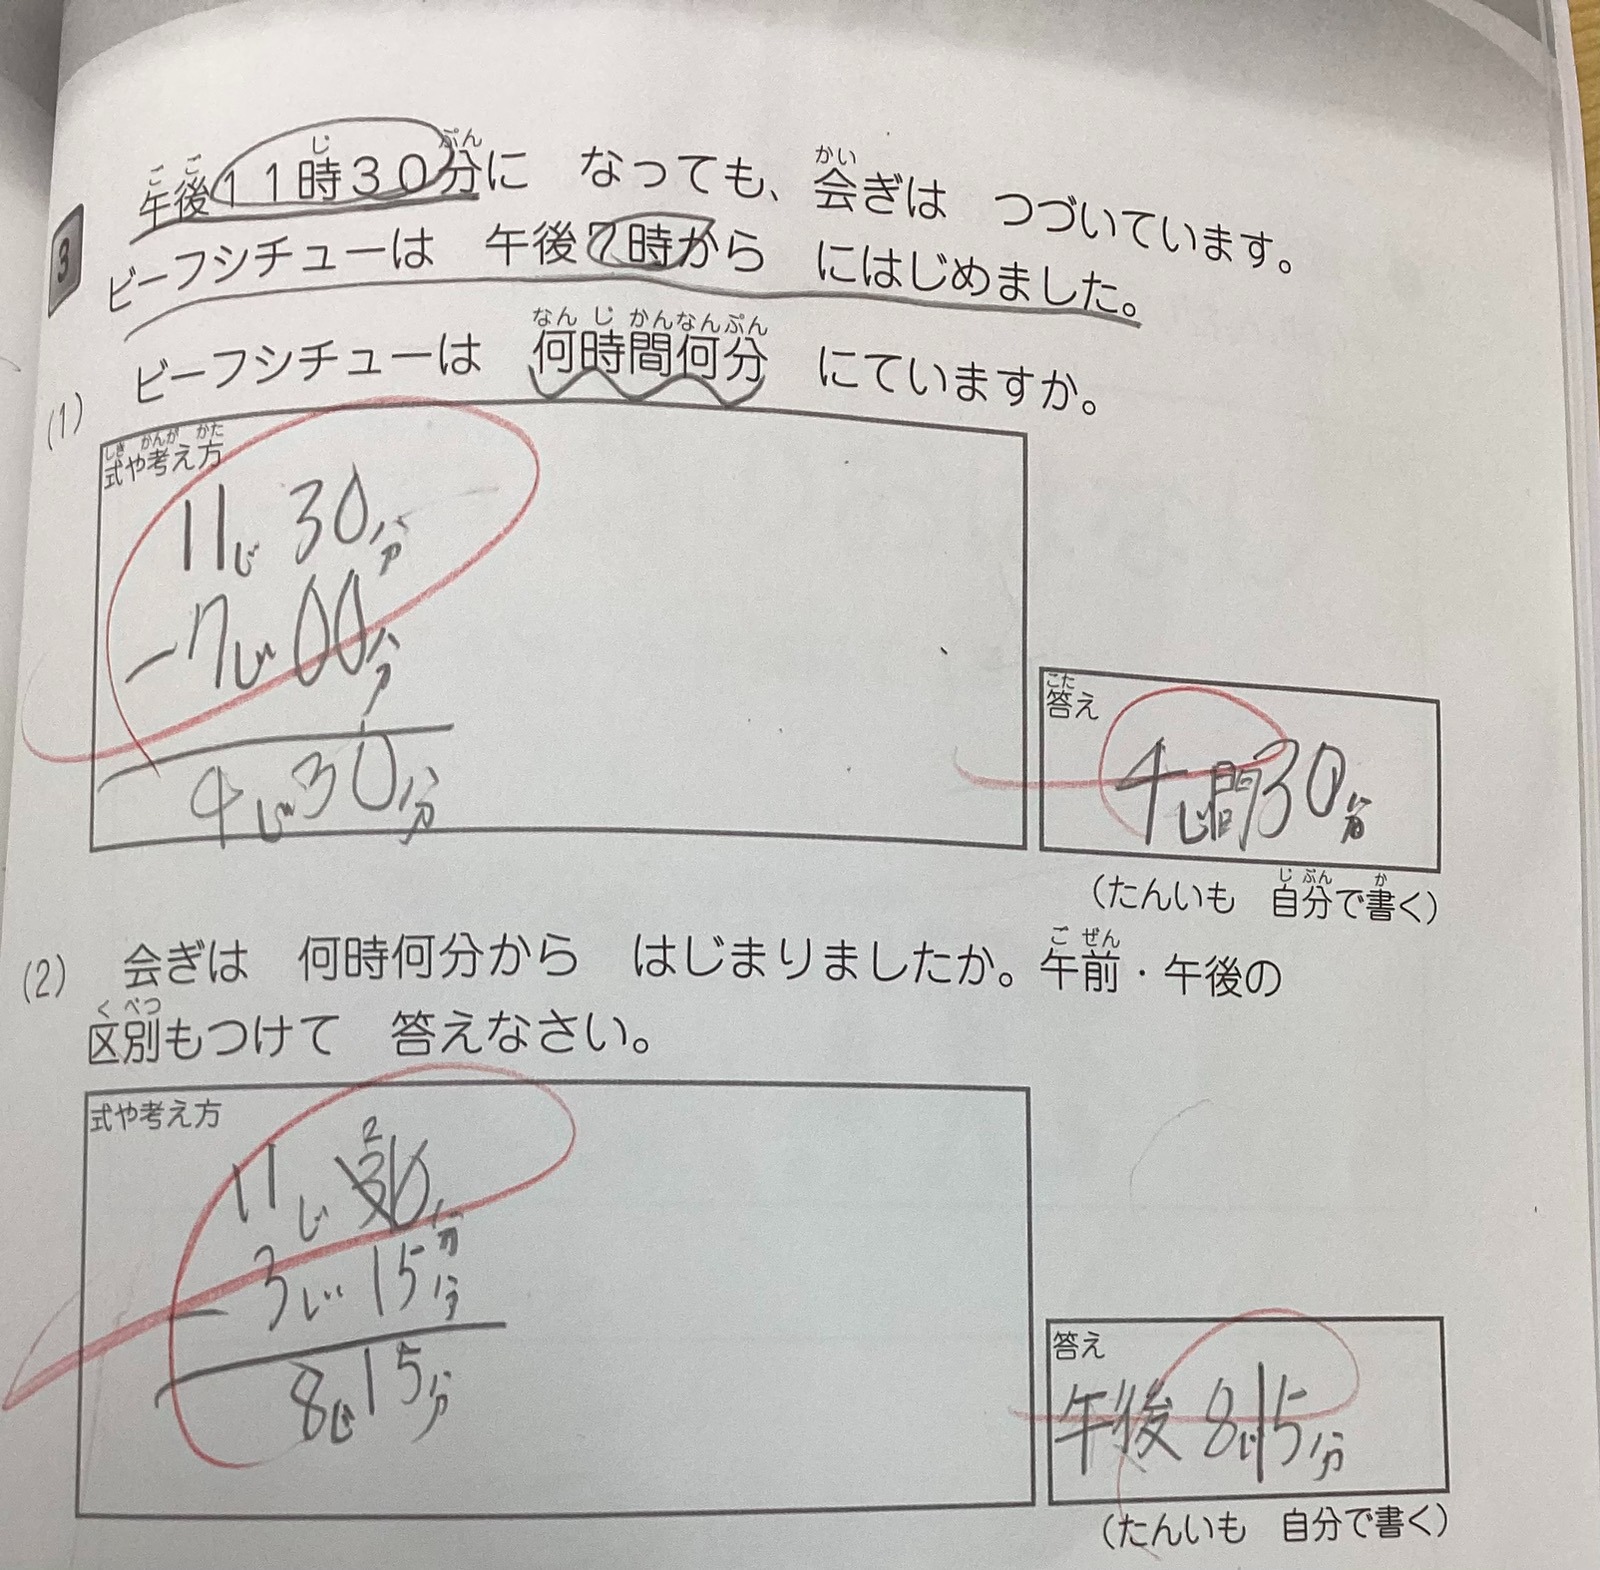 3
午後11時30分に なっても、会ぎは つづいています。
ビーフシチューは 午後7時から にはじめました。
(1) ビーフシチューは 何時間何分 にていますか。
式や考え方
11じ30分
-7じ00分
4じ30分
答え
4じ間30分
(たんいも 自分で書く)
(2) 会ぎは 何時何分から はじまりましたか。午前・午後の
区別もつけて 答えなさい。
式や考え方
2
11じ30分
-3じ15分
8じ15分
答え
午後8じ15分
(たんいも 自分で書く)